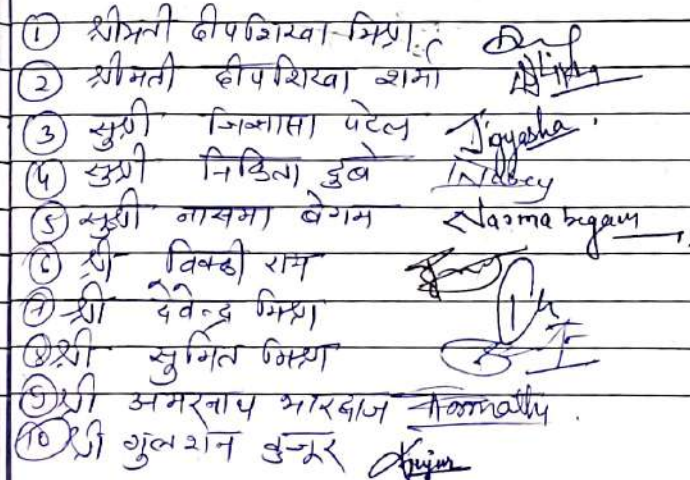 ① श्रीमती दीपशिखा मिश्रा
② श्रीमती दीपशिखा शर्मा
③ सुश्री जिज्ञासा पटेल Jigyasha
④ सुश्री निकिता दुबे
⑤ सुश्री नासमा बेगम Narma begam
⑥ श्री विक्की राम
⑦ श्री देवेन्द्र मिश्रा
⑧ श्री सुमित मिश्रा
⑨ श्री अमरनाथ भारद्वाज
⑩ श्री गुलशन कुजूर Kujur